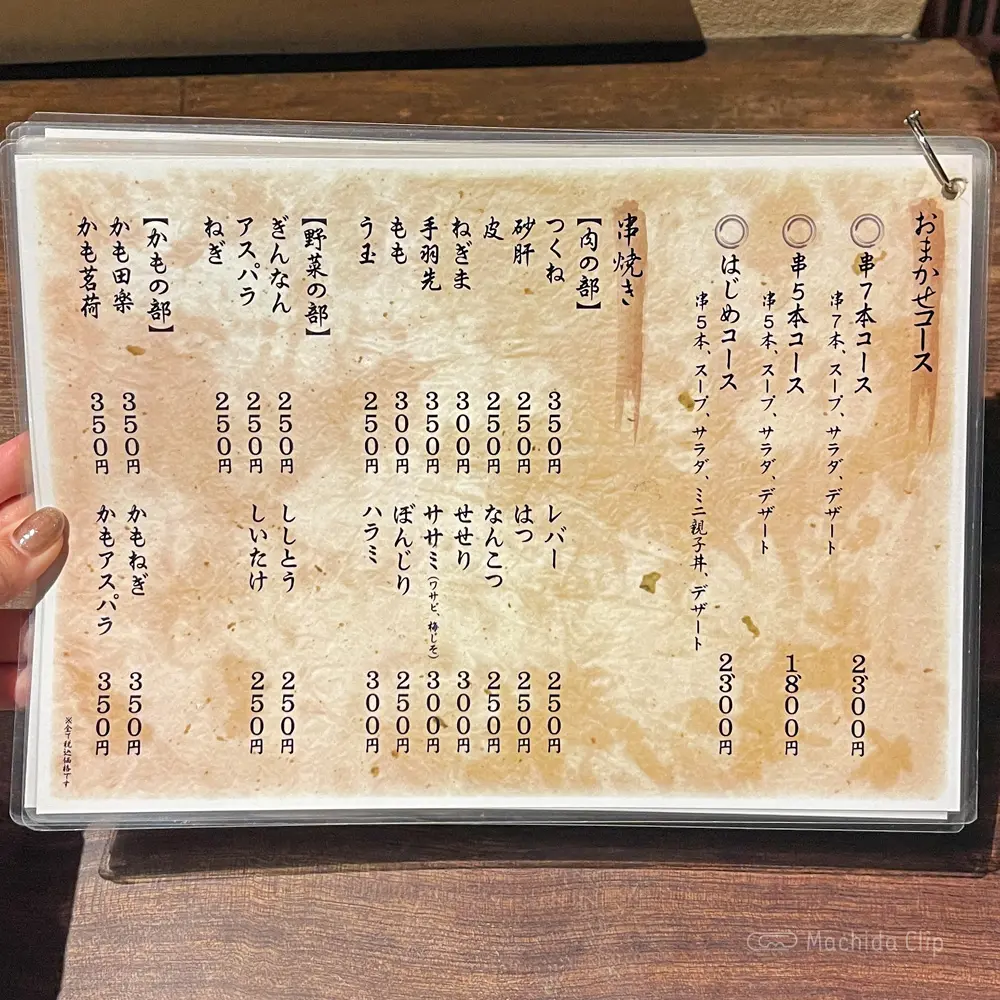 おまかせコース
◎串7本コース 2,300円
串7本、スープ、サラダ、デザート
◎串5本コース 1,800円
串5本、スープ、サラダ、デザート
◎はじめコース 2,300円
串5本、スープ、サラダ、ミニ親子丼、デザート
串焼き
【肉の部】
つくね 350円 レバー 250円
砂肝 250円 はつ 250円
皮 250円 なんこつ 250円
ねぎま 300円 せせり 300円
手羽先 350円 ササミ(ワサビ、梅じそ) 300円
もも 300円 ぼんじり 250円
う玉 250円 ハラミ 300円
【野菜の部】
ぎんなん 250円 ししとう 250円
アスパラ 250円 しいたけ 250円
ねぎ 250円
【かもの部】
かも田楽 350円 かもねぎ 350円
かも茗荷 350円 かもアスパラ 350円
※全て税込価格です
Machida Clip